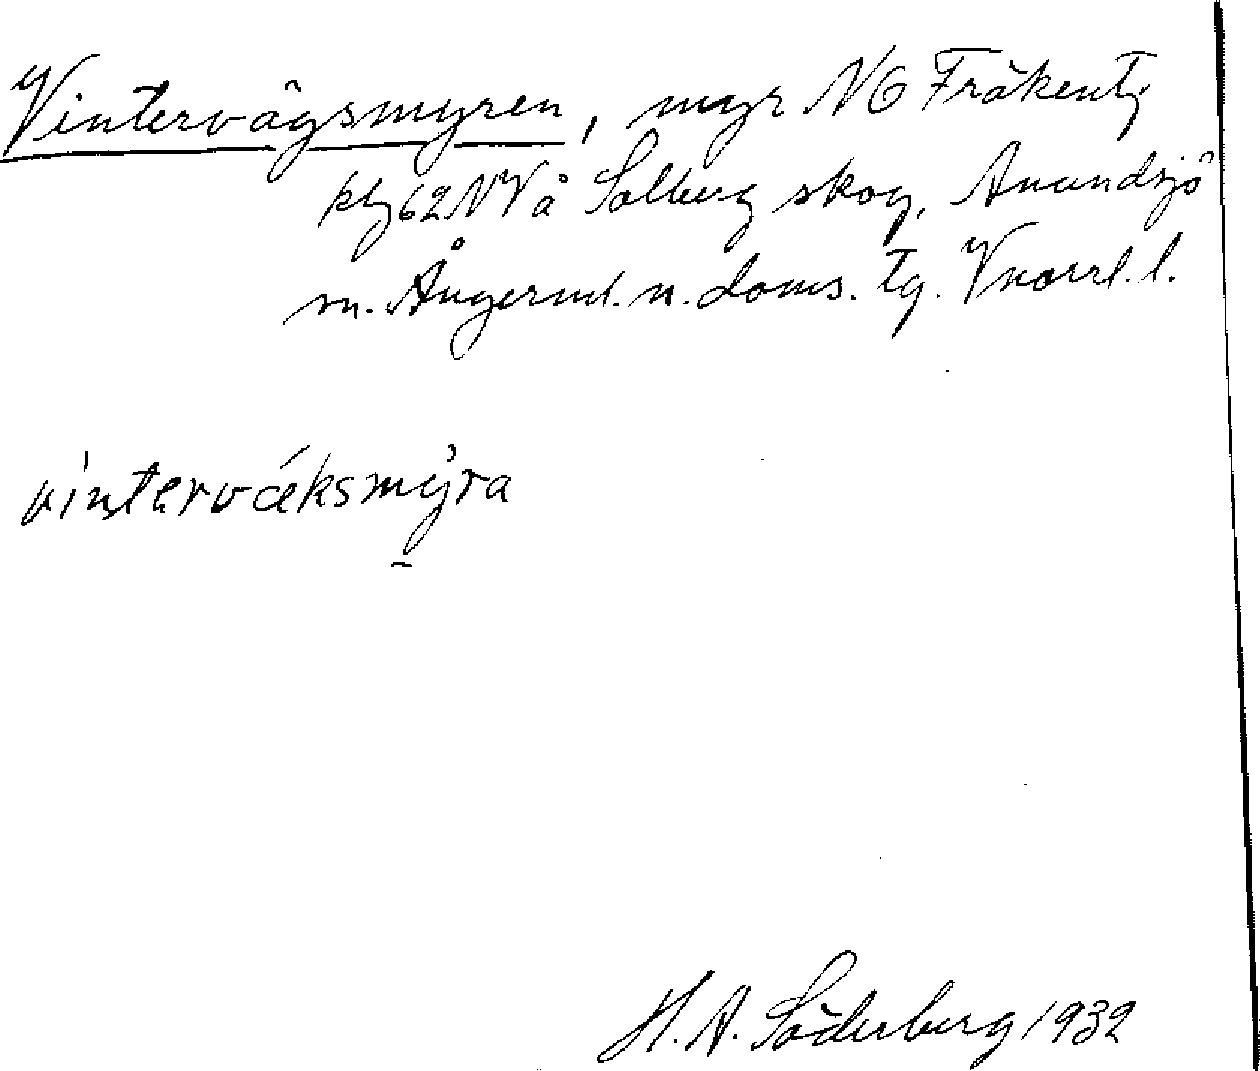 Vintervägsmyren, myr NO Fräkentj
kbl 62 NV å Solberg skog, Anundsjö
m. Ångerml. n. doms. tg. Vnorrl. l.
vinterväksmyra
H. A. Söderberg 1932